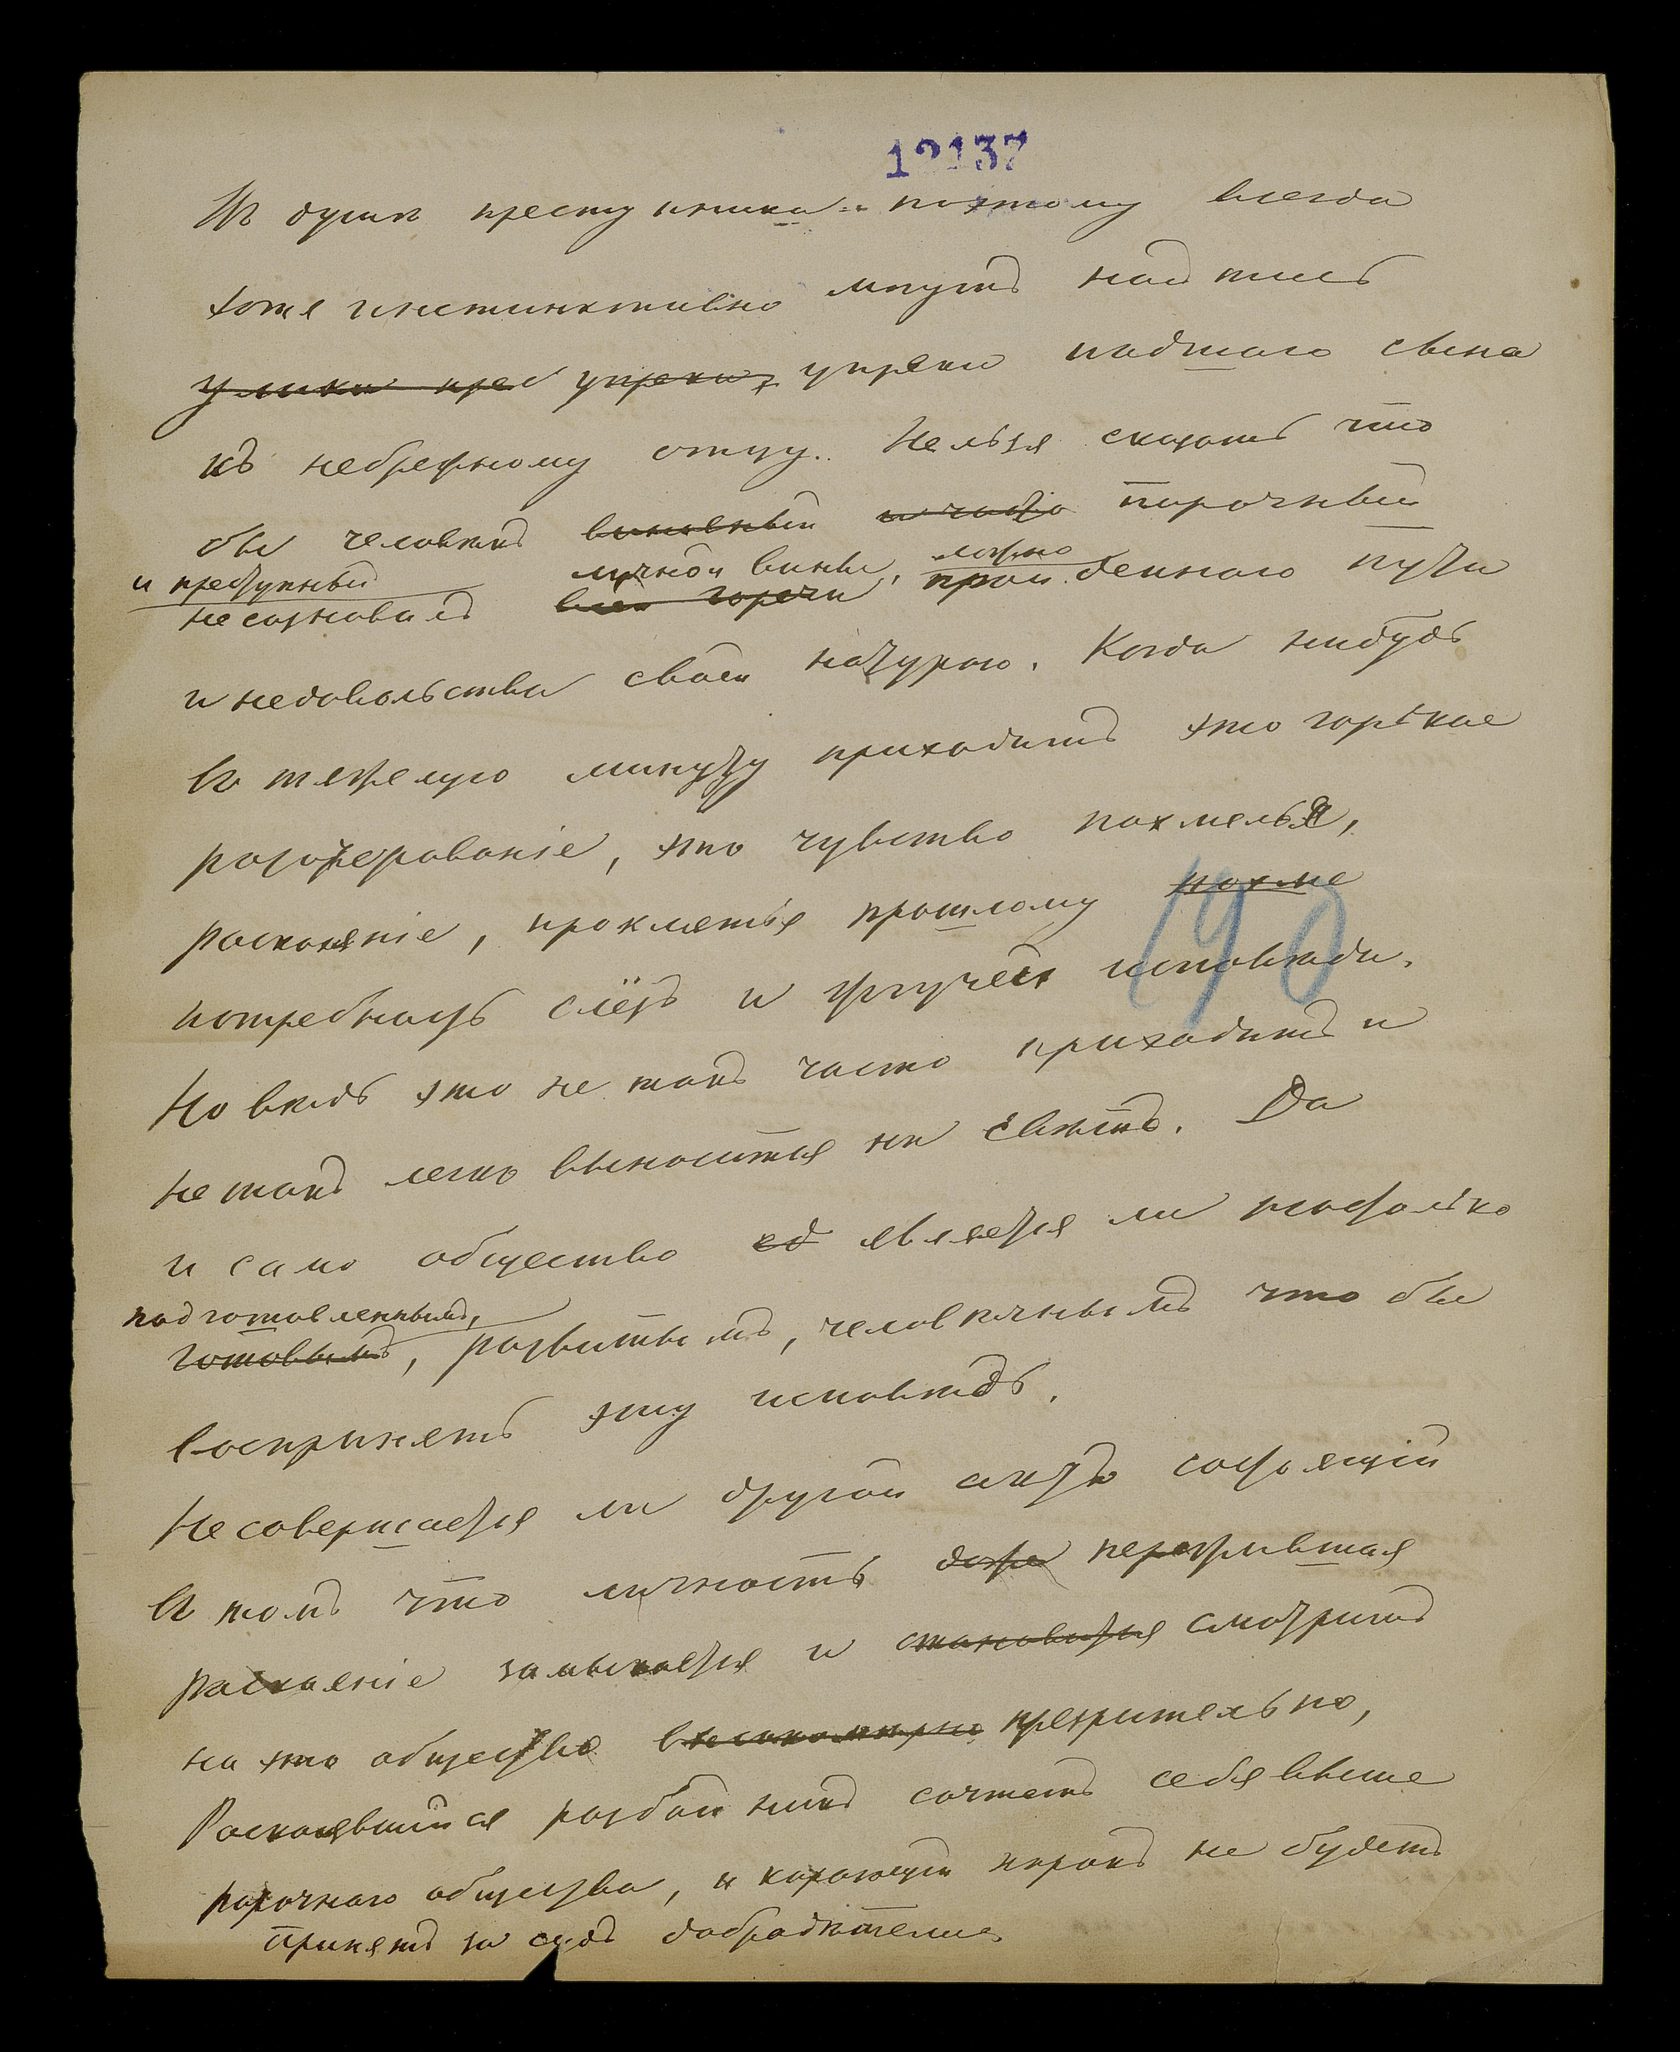 12137
Въ душѣ преступника поэтому всегда
хотя инстинктивно могутъ найтись
улики пред упреки, упреки падшаго сына
къ небрежному отцу. Нельзя сказать что
бы человѣкъ виновный и часто порочный
и преступный
личной вины, ложно
несознавалъ всей горечи пройденнаго пути
и недовольства своей натурою. Когда нибудь
въ тяжелую минуту приходитъ это горькое
разочерованіе, это чувство похмелья,
раскаяніе, проклятья прошлому похме
190
потребность слёзъ и жгучей исповѣди.
Но вѣдь это не такъ часто приходитъ и
не такъ легко выносится на свѣтъ. Да
и само общество об является ли настолько
подготовленнымъ,
готовымъ, развитымъ, человѣчнымъ что бы
воспринять эту исповѣдь.
Не совершается ли другой актъ состоящій
въ томъ что личность даже пережившая
раскаяніе замыкается и становится смотритъ
на это общество высокомѣрно презрительно,
Раскаявшійся разбойникъ сочтетъ себя выше
порочнаго общества, и карающій порокъ не будетъ
принятъ за судъ добродѣтели.